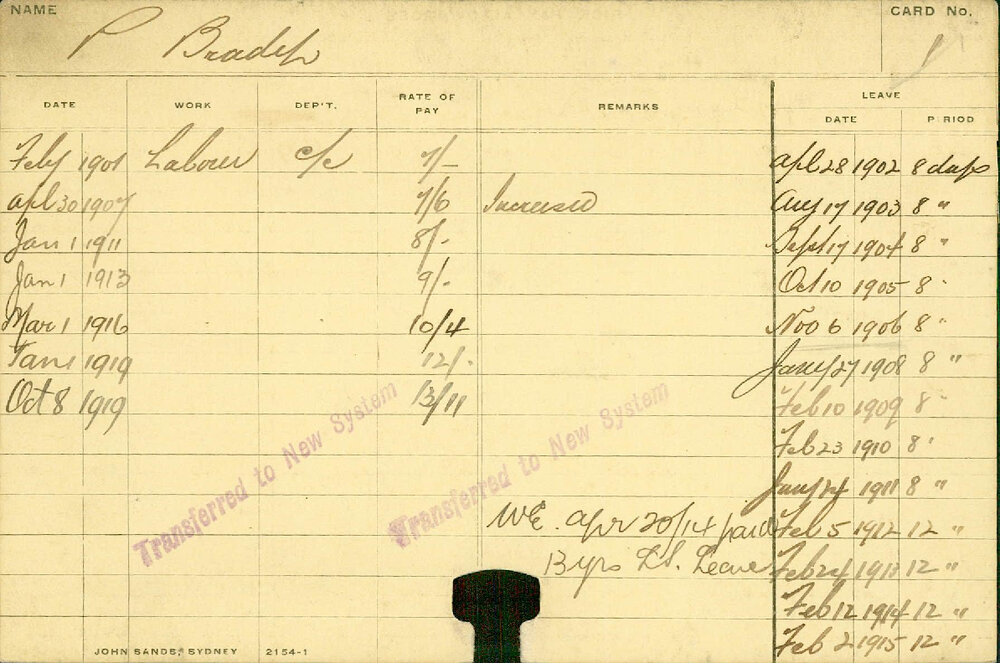 NAME P CARD No. 1
DATE WORK DEP'T. RATE OF PAY REMARKS LEAVE
DATE PERIOD
Feby 1901 Labour c/c 7/- Apl 28 1902 8 days
Apl 30 1907 7/6 Increased Aug 17 1903 8 "
Jan 1 1911 8/- Sept 17 1904 8 "
Jan 1 1913 9/- Oct 10 1905 8 "
Mar 1 1916 10/4 Nov 6 1906 8 "
Jan 1 1919 12/- Jany 27 1908 8 "
Oct 8 1919 13/11 Feb 10 1909 8 "
Feb 23 1910 8 "
Transferred to New System Transferred to New System
Jany 1911 8 "
W.E. Apr 20/14 paid Feb 5 1912 12 "
13 yrs L.S. Leave Feb 24 1913 12 "
Feb 12 1914 12 "
Feb 2 1915 12 "
JOHN SANDS, SYDNEY 2154-1